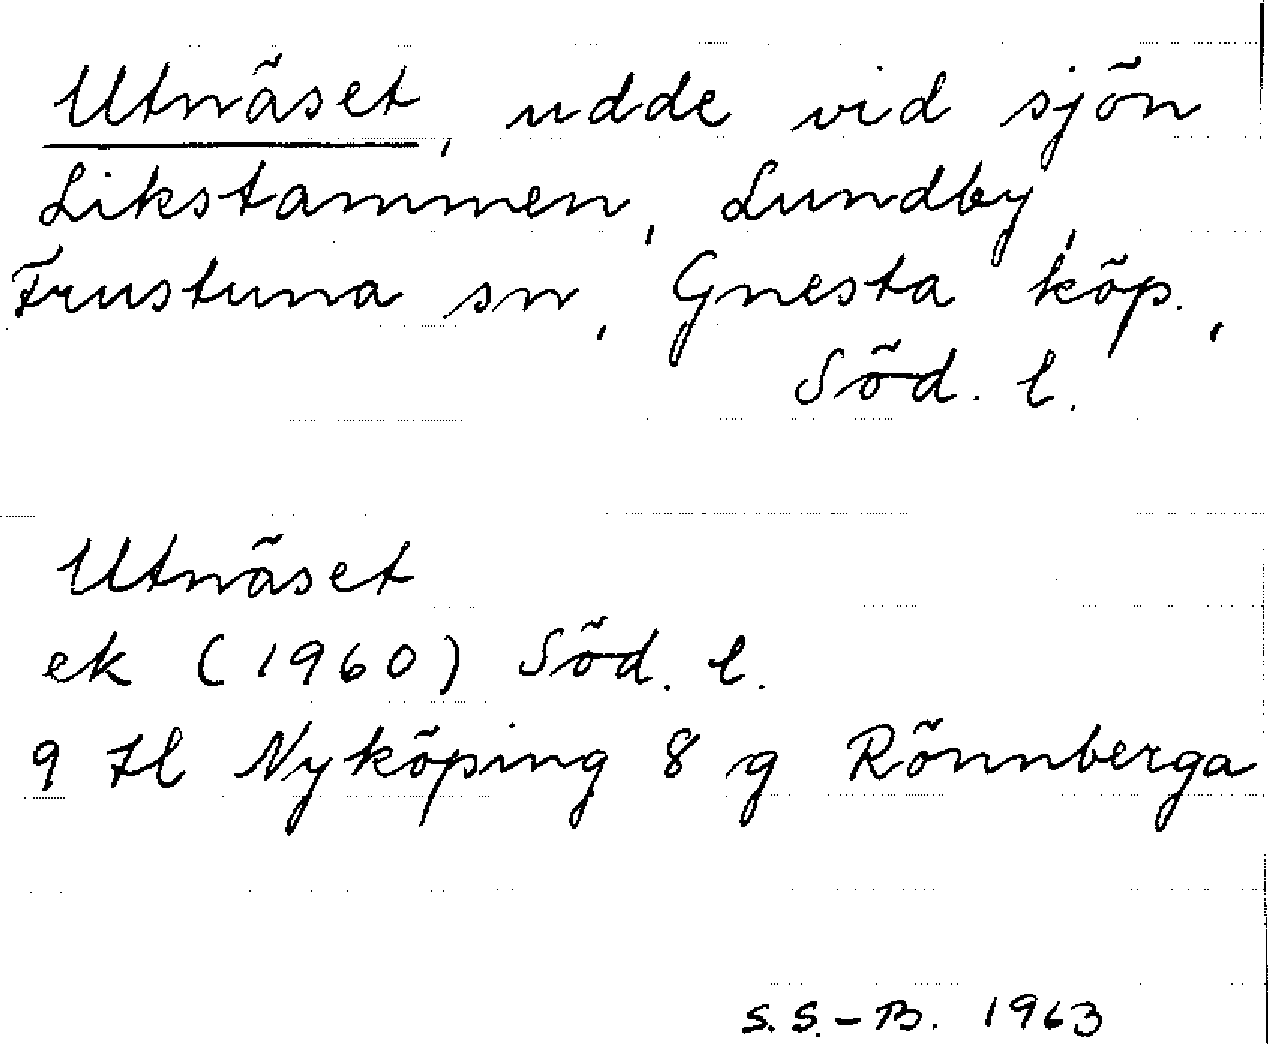 Utnäset, udde vid sjön
Likstammen, Lundby,
Frustuna sn, Gnesta köp.,
Söd. l.
Utnäset
ek (1960) Söd. l.
9 H Nyköping 8 g Rönnberga
S.S.-B. 1963